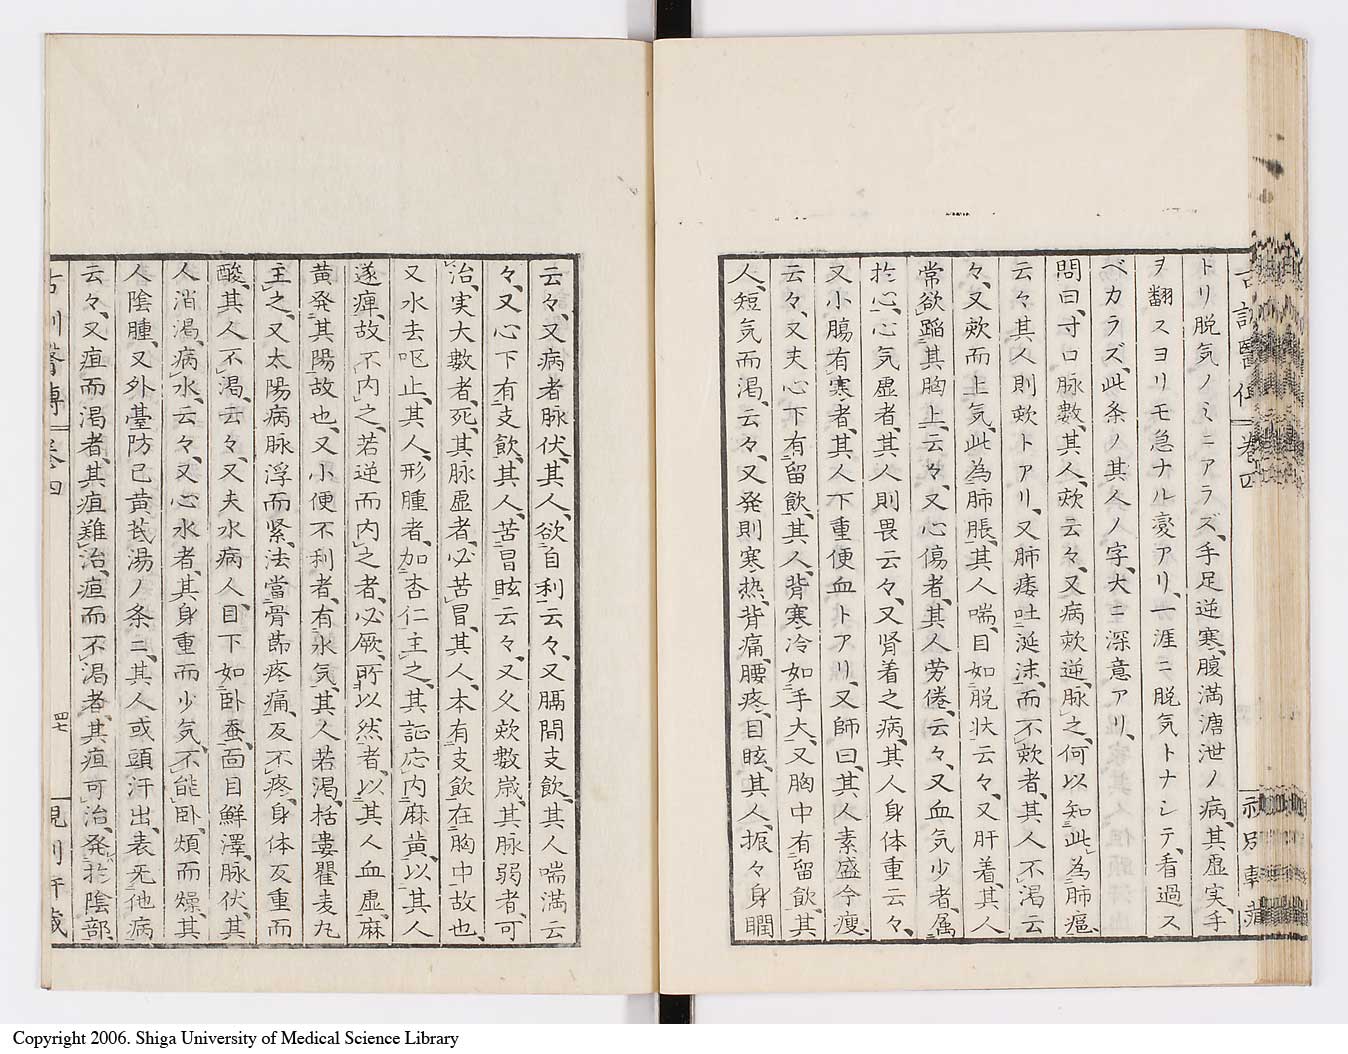 トリ脱気ノミニアラズ、手足逆寒、腹満溏泄ノ病、其虚実、手
ヲ翻スヨリモ急ナル変アリ、一涯ニ脱気トナシテ、看過ス
ベカラズ、此条ノ其人ノ字、大ニ至深意アリ、
問曰、寸口脉数、其人欬云々、又病欬逆、脉之、何以知此為肺癰
云々、其人則欬トアリ、又肺痿吐涎沫、而不欬者、其人不渇云
々、又欬而上気、此為肺脹、其人喘、目如脱状云々、又肝着、其人
常欲蹈其胸上、云々、又心傷者、其人労倦、云々、又血気少者、属
於心、心気虚者、其人則畏云々、又腎着之病、其人身体重云々、
又小腸有寒者、其人下重便血トアリ、又師曰、其人素盛今瘦
云々、又夫心下有留飲、其人背寒冷如手大、又胸中有留飲、其
人、短気而渇、云々、又発則寒熱、背痛、腰疼、目眩、其人、振々身瞤
云々、又病者脉伏、其人、欲自利云々、又膈間支飲、其人喘満云
々、又心下有支飲、其人、苦冒眩云々、又久欬数歳、其脉弱者、可
治、実大数者、死、其脉虚者、必苦冒、其人、本有支飲在胸中故也、
又水去呕止、其人、形腫者、加杏仁主之、其証応内麻黄、以其人
遂痺、故不内之、若逆而内之者、必厥、所以然者、以其人血虚、麻
黄発其陽故也、又小便不利者、有水気、其人若渇、栝蔞瞿麦丸
主之、又太陽病脉浮而緊、法當骨節疼痛、反不疼、身体反重而
酸、其人不渇、云々、又夫水病人、目下如卧蚕、面目鮮澤、脉伏、其
人消渇、病水、云々、又心水者、其身重而少気、不能卧、煩而燥、其
人陰腫、又外臺防已黄芪湯ノ条ニ、其人或頭汗出、表无他病
云々、又疸而渇者、其疸難治、疸而不渇者、其疸可治、発於陰部、
四七